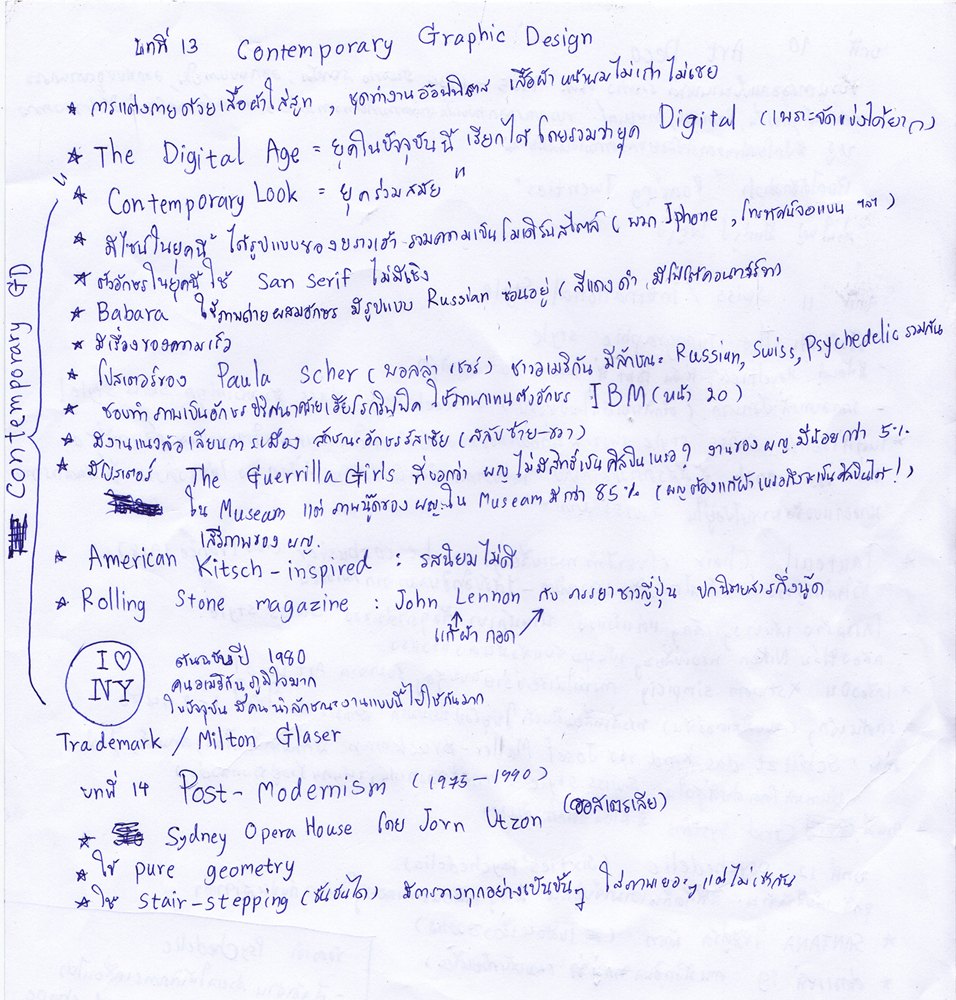 บทที่ 13 Contemporary Graphic Design
★ การแต่งกายด้วยเสื้อผ้าใส่สูท, ชุดทำงานออฟฟิตส เสื้อผ้า หน้าผมไม่เก่า ไม่เชย
★ The Digital Age = ยุคในปัจจุบันนี้ เรียกได้ โดยรวมว่ายุค Digital (เพราะจัดแบ่งได้ยาก)
★ Contemporary Look = ยุคร่วมสมัย "
★ ดีไซน์ในยุคนี้ ได้รูปแบบของยุคเก่า รวมความเป็นโมเดิร์นสไตล์ (พวก Iphone, โทรทัศน์จอแบน ฯลฯ)
★ ตัวอักษรในยุคนี้ ใช้ San serif ไม่มีเชิง
★ Babara ใช้ภาพถ่ายผสมอักษร มีรูปแบบ Russian ซ่อนอยู่ (สีแดง ดำ, มีโฟโต้
★ มีเรื่องของความเร็ว
★ โปสเตอร์ของ Paula Scher (พอลล่า เชอร์) ชาวอเมริกัน มีลักษณะ Russian, Swiss, Psychedelic รวมกัน
★ ชอบทำ ภาพเป็นอักษรปริศนาคล้ายเฮียโรกริฟฟิค ใช้ภาพแทนตัวอักษร IBM (หน้า 20)
★ มีงานแนวล้อเลียนการเมือง ลักษณะอักษรรัสเซีย (สลับซ้าย-ขวา)
★ มีโปรเตอร์ The Guerrilla Girls ที่บอกว่า ผญ ไม่มีสิทธิ์เป็นศิลปินเหรอ? งานของ ผญ. มีน้อยกว่า 5%
ใน Museam แต่ ภาพนู๊ดของ ผญ. ใน Museam มีกว่า 85% (ผญ ต้องแก้ผ้าเหรอถึงจะเป็นศิลปินได้!)
เสรีภาพของ ผญ.
★ American Kitsch-inspired : รสนิยมไม่ดี
★ Rolling Stone magazine : John Lennon กับ ภรรยาชาวญี่ปุ่น ปกนิตยสารกึ่งนู๊ด
แก้ผ้า กอด
Contemporary GD
I ♡ NY
ต้นฉบับปี 1980
คนอเมริกันภูมิใจมาก
ในปัจจุบัน มีคนนำลักษณะงานแบบนี้ไปใช้กันมาก
Trademark / Milton Glaser
บทที่ 14 Post-Modernism (1975-1990)
★ Sydney Opera House โดย Jorn Utzon (ออสเตรเลีย)
★ ใช้ pure geometry
★ ใช้ stair-stepping (ขั้นบันได) มีการวางทุกอย่างเป็นขั้นๆ ใส่ภาพเยอะๆ แต่ไม่เข้ากัน